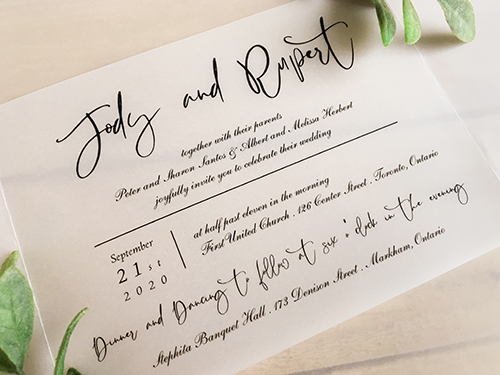 Jody and Rupert
together with their parents
Peter and Sharon Santos & Albert and Melissa Herbert
joyfully invite you to celebrate their wedding
September
21st
2020
at half past eleven in the morning
First United Church . 126 Center Street . Toronto, Ontario
Dinner and Dancing to follow at six o'clock in the evening
Stephita Banquet Hall . 173 Denison Street . Markham, Ontario